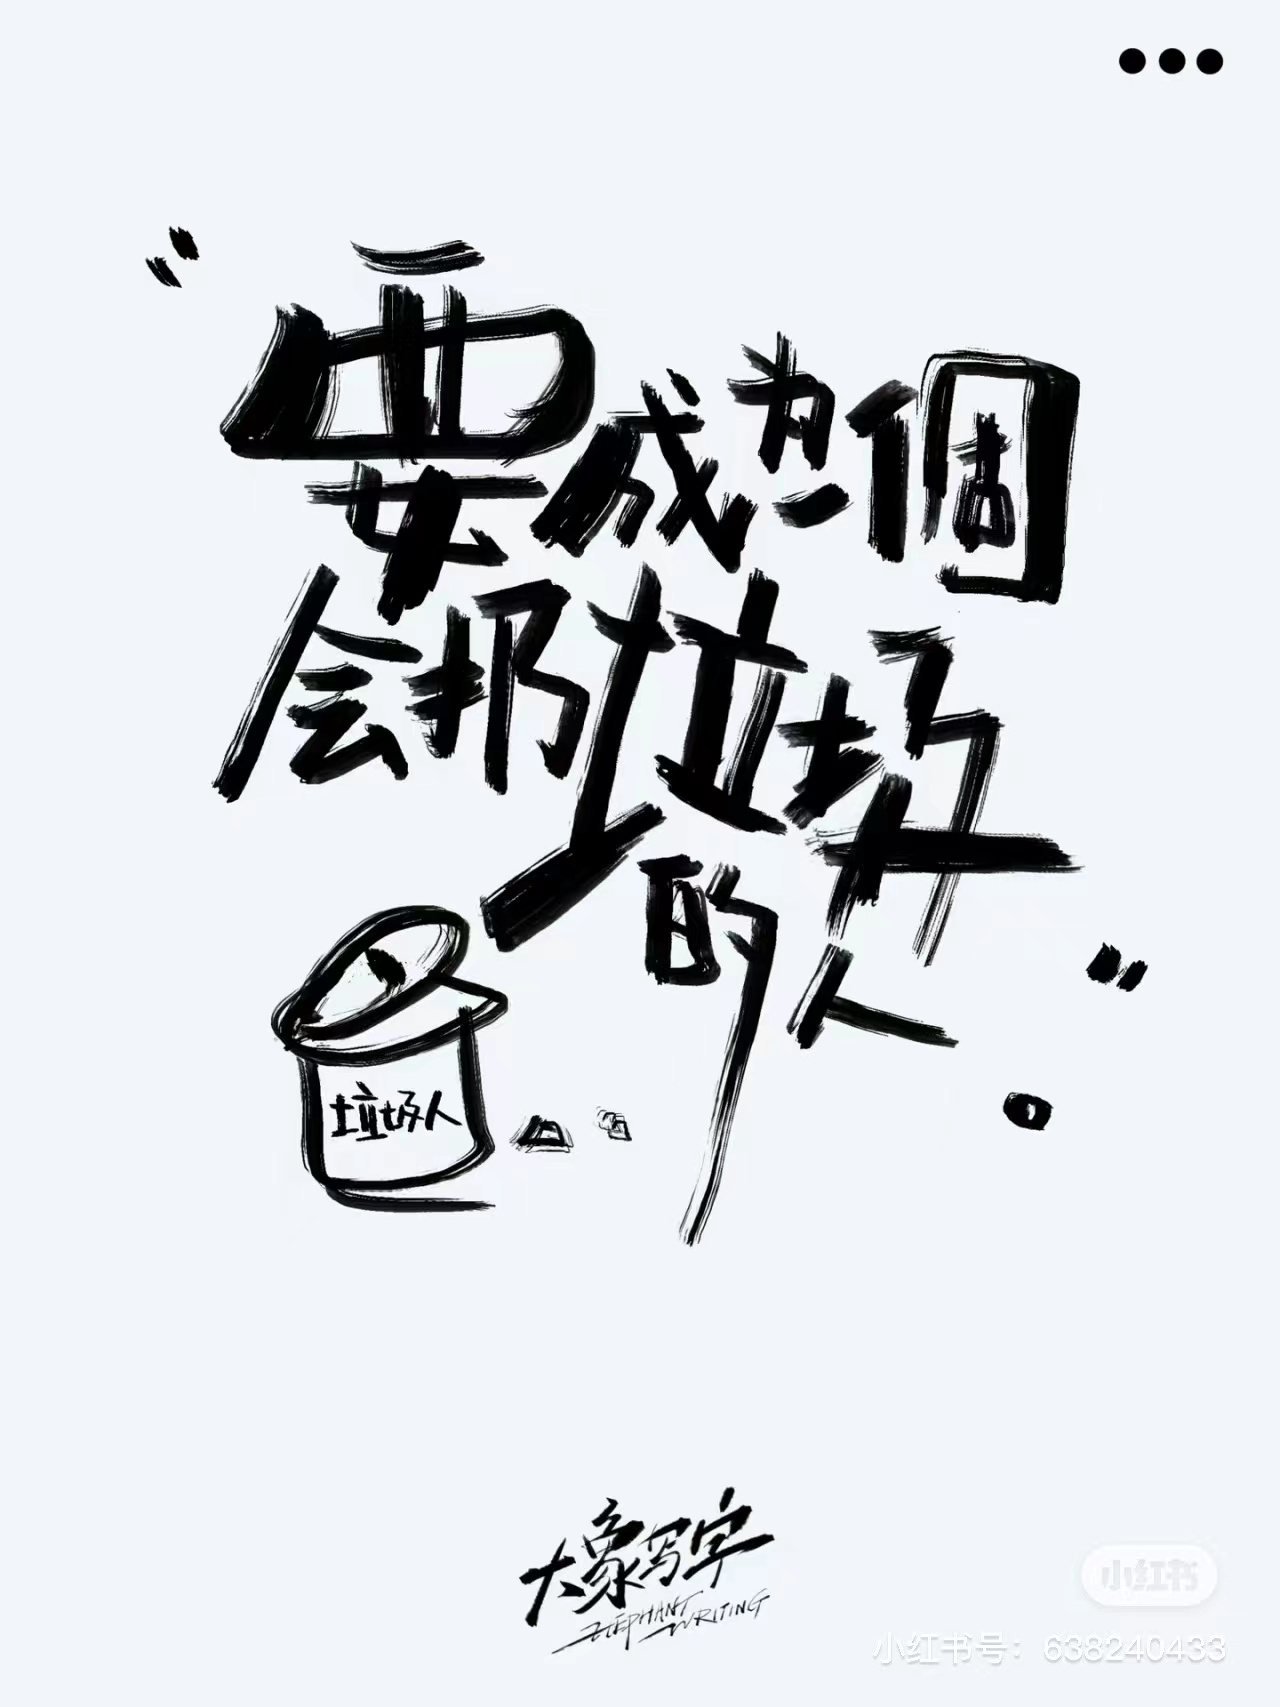 “要成为一個
会扔垃圾
的人”。
垃圾人
大象写字
ELEPHANT WRITING
小红书
小红书号：638240433